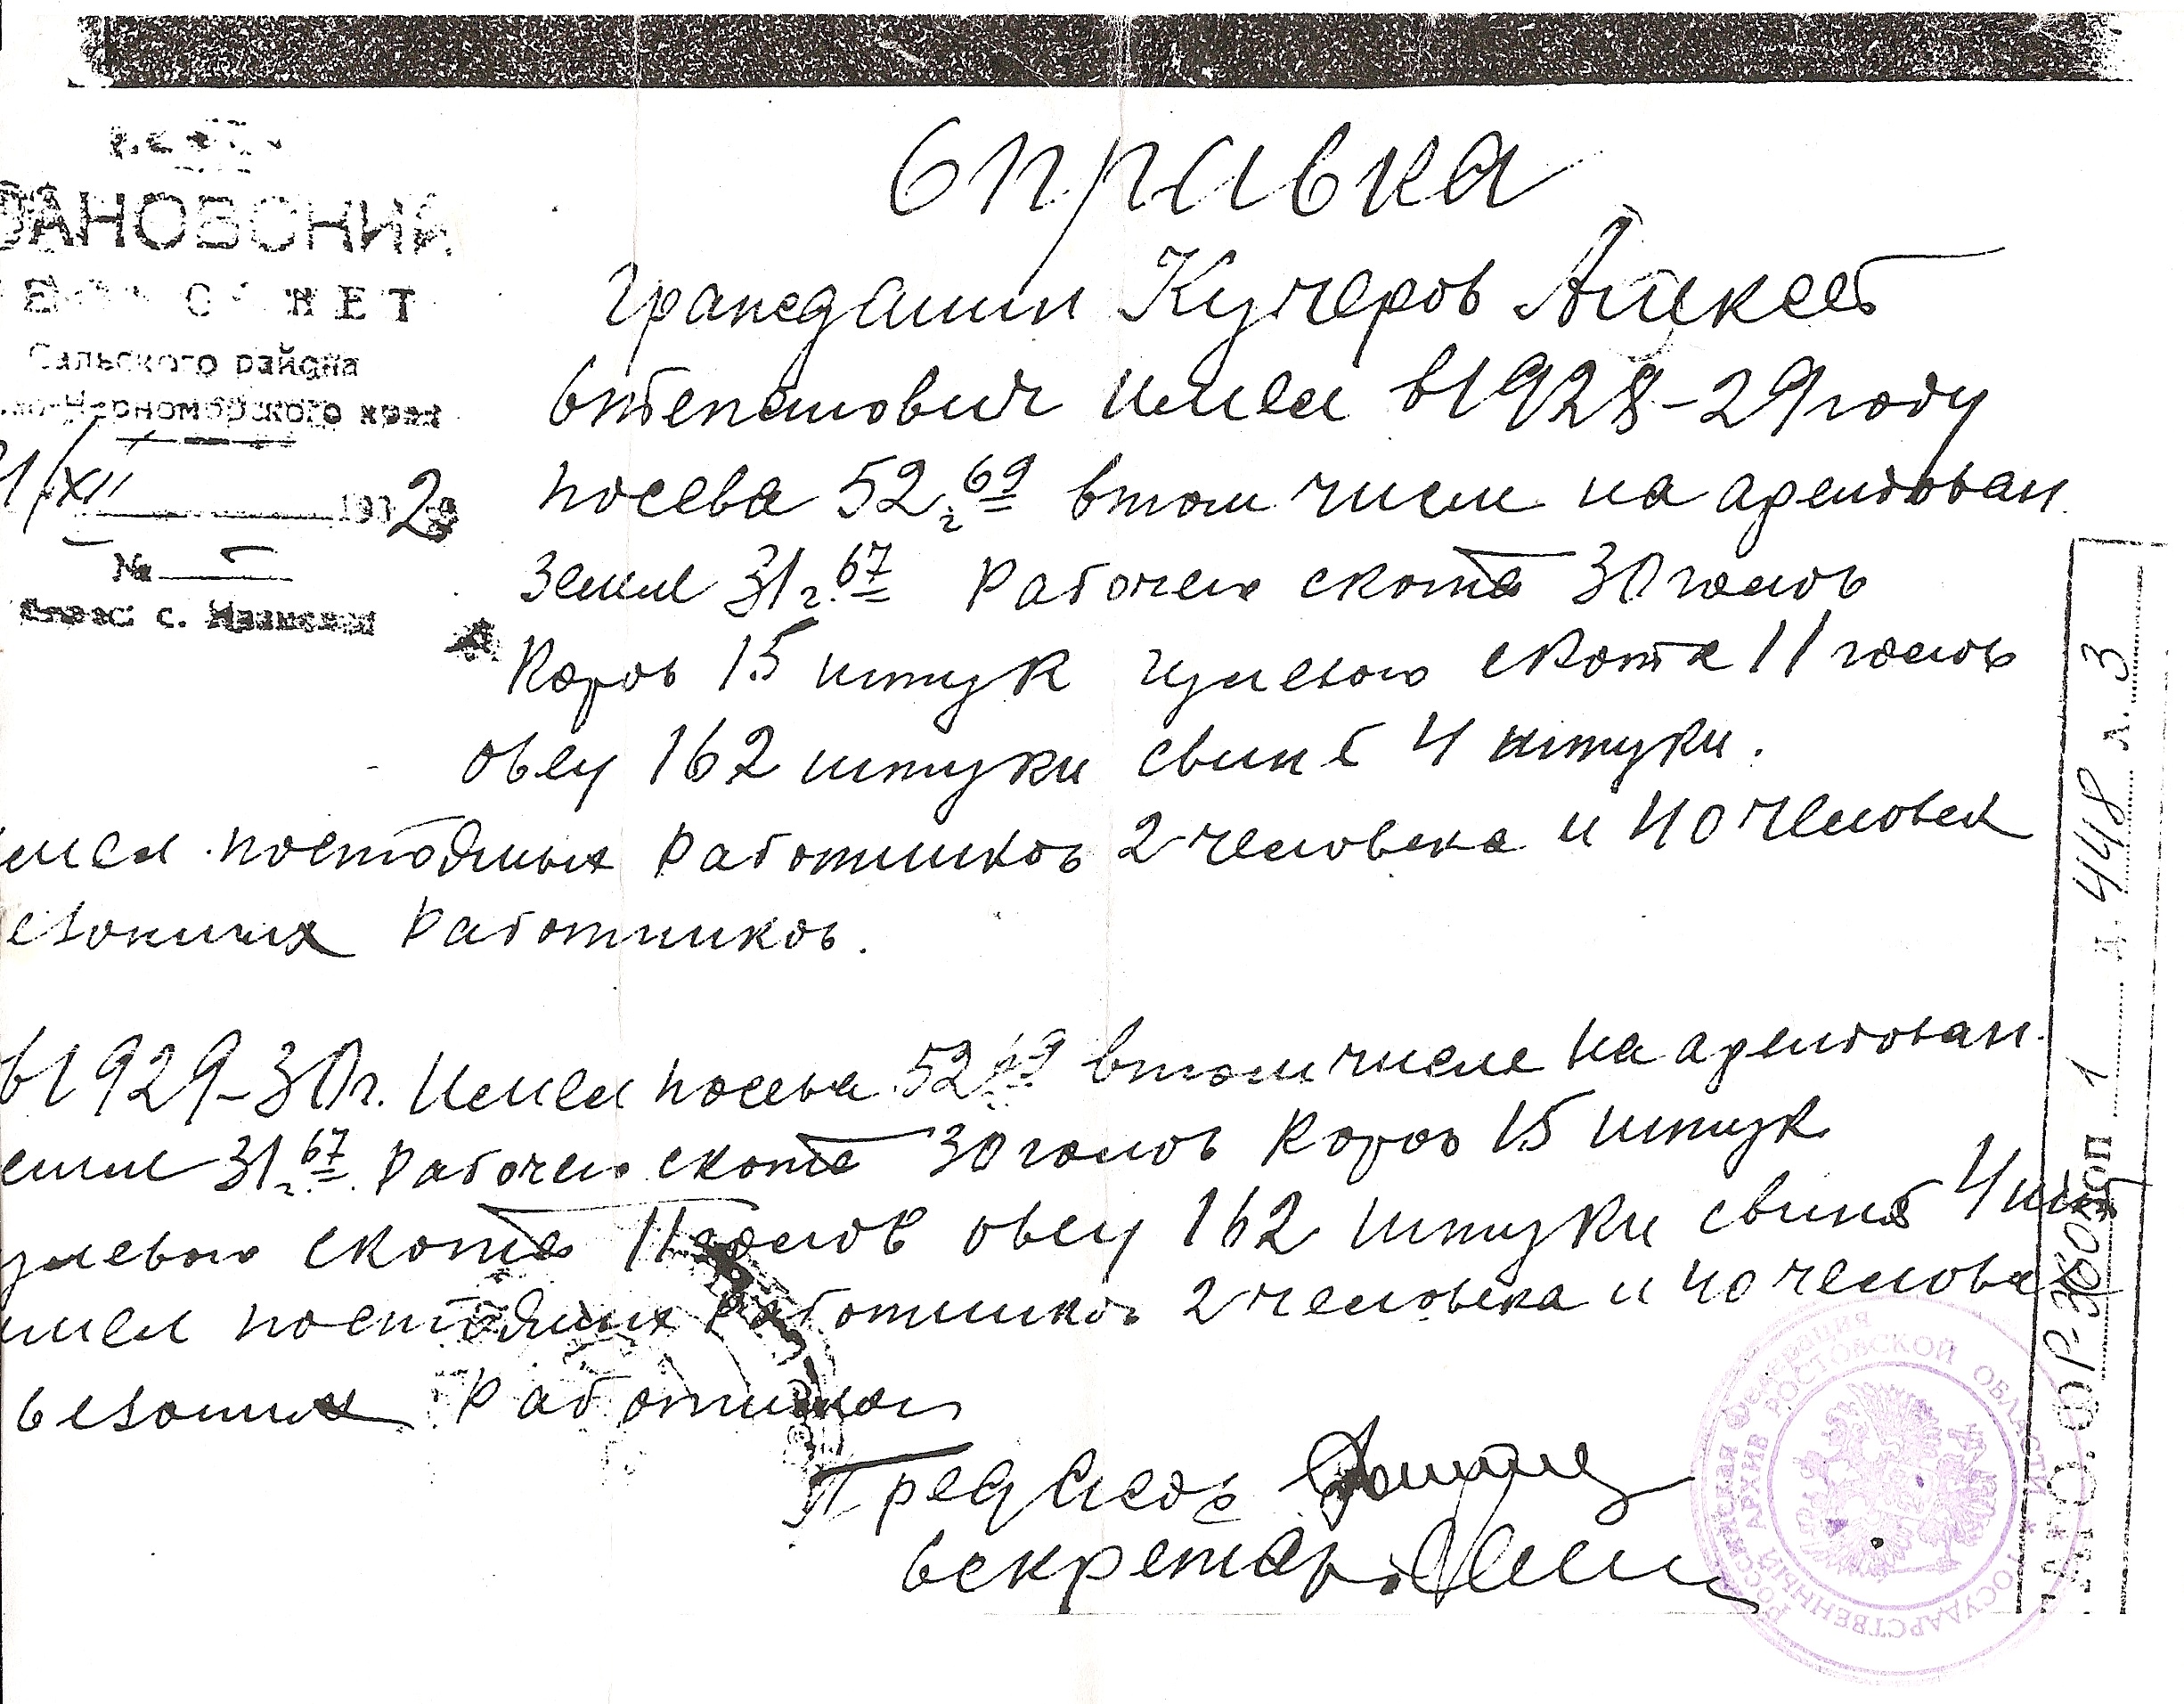 АНОВСКИЙ
СОВЕТ
Сальского района
Черноморского края
1/XII 1932
№
с.
Справка
Гражданин Кучеров Алексей
Степанович имел в 1928-29 году
посева 52 г 69 в том числе на арендован.
земле 31 г. 67 Рабочего скота 30 голов
Коров 15 штук гулевого скота 11 голов
овец 162 штуки свиней 4 штуки.
имел постоянных Работников 2 человека и 40 человек
езонных Работников.
в 1929-30 г. Имел посева 52 69 в том числе на арендован.
емле 31 г. 67 Рабочего скота 30 голов Коров 15 штук
улевого скота 11 голов овец 162 штуки свиней 4 шт
имел постоянных Работников 2 человека и 40 человек
сезонных Работников
Пред С/сов
Секретарь
Ф Р-3 оп 1 д. 448 л. 3
Российская Федерация
ГОСУДАРСТВЕННЫЙ АРХИВ РОСТОВСКОЙ ОБЛАСТИ